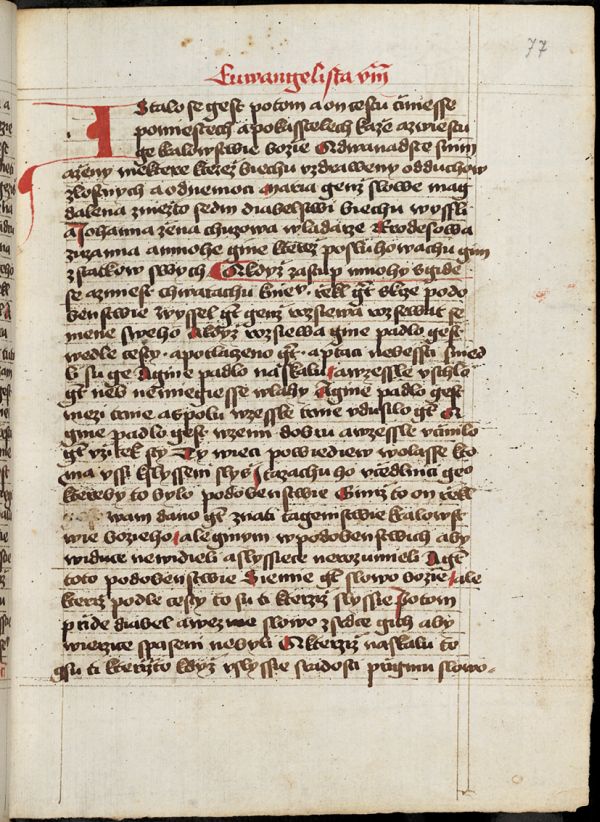 77
Euwangelista viii
I Stalo se gest potom a on cestu činiesse
po miestech a po kasstelech kaže a zwiestu
ge kalowstwie bozie A dwanadste s nim
a ženy niektere kterež biechu vzdraweny od duchow
zlostnych a od nemoci Maria genž slowe mag
dalena z niežto sedm diabelstwi biechu wyssli
a Johanna žena chuzowa wladaře herodesowa
zuzanna a mnohe gine kterež posluhowachu gim
z statkow swych A když zastup mnohy sgide
se a z miest chwatachu k niey · řekl gt skrze podo
benstwie wyssel gt genž rozsiewa rozsiewat se
mene sweho A když rozsiewa gine padlo gest
wedle cesty · a potlačeno gt · a ptaci nebessti snied
li su ge A gine padlo na skalu a wzessle vschlo
gt neb nemiegiesse wlahy A gine padlo gest
mezi trnie a spolu wzessle trnie vdusilo gt A
gine padlo gest w zemi dobru a wzessle včinilo
gt vžitek sty Ty wieci powiediew wolasse kto
ma vssi k slyssení slyš I tazachu ho včedlnici geo
ktereby to bylo podobenstwie Gimž to on řekl
wam dano gt znati tagemstwie kalowst
wie bozieho ale ginym w podobenstwich aby
widuce newidieli a slyssiece nerozumieli A gt
toto podobenstwie Siemie gt slowo bozie ale
kteriž podle cesty to su ti kteřiž slyssie potom
přide diabel a wezme slowo z srdce gich aby
wierzice spaseni nebyli A kteřiž na skalu to
gsu ti kteřižto když vslyssie s radosti přigmu slowo